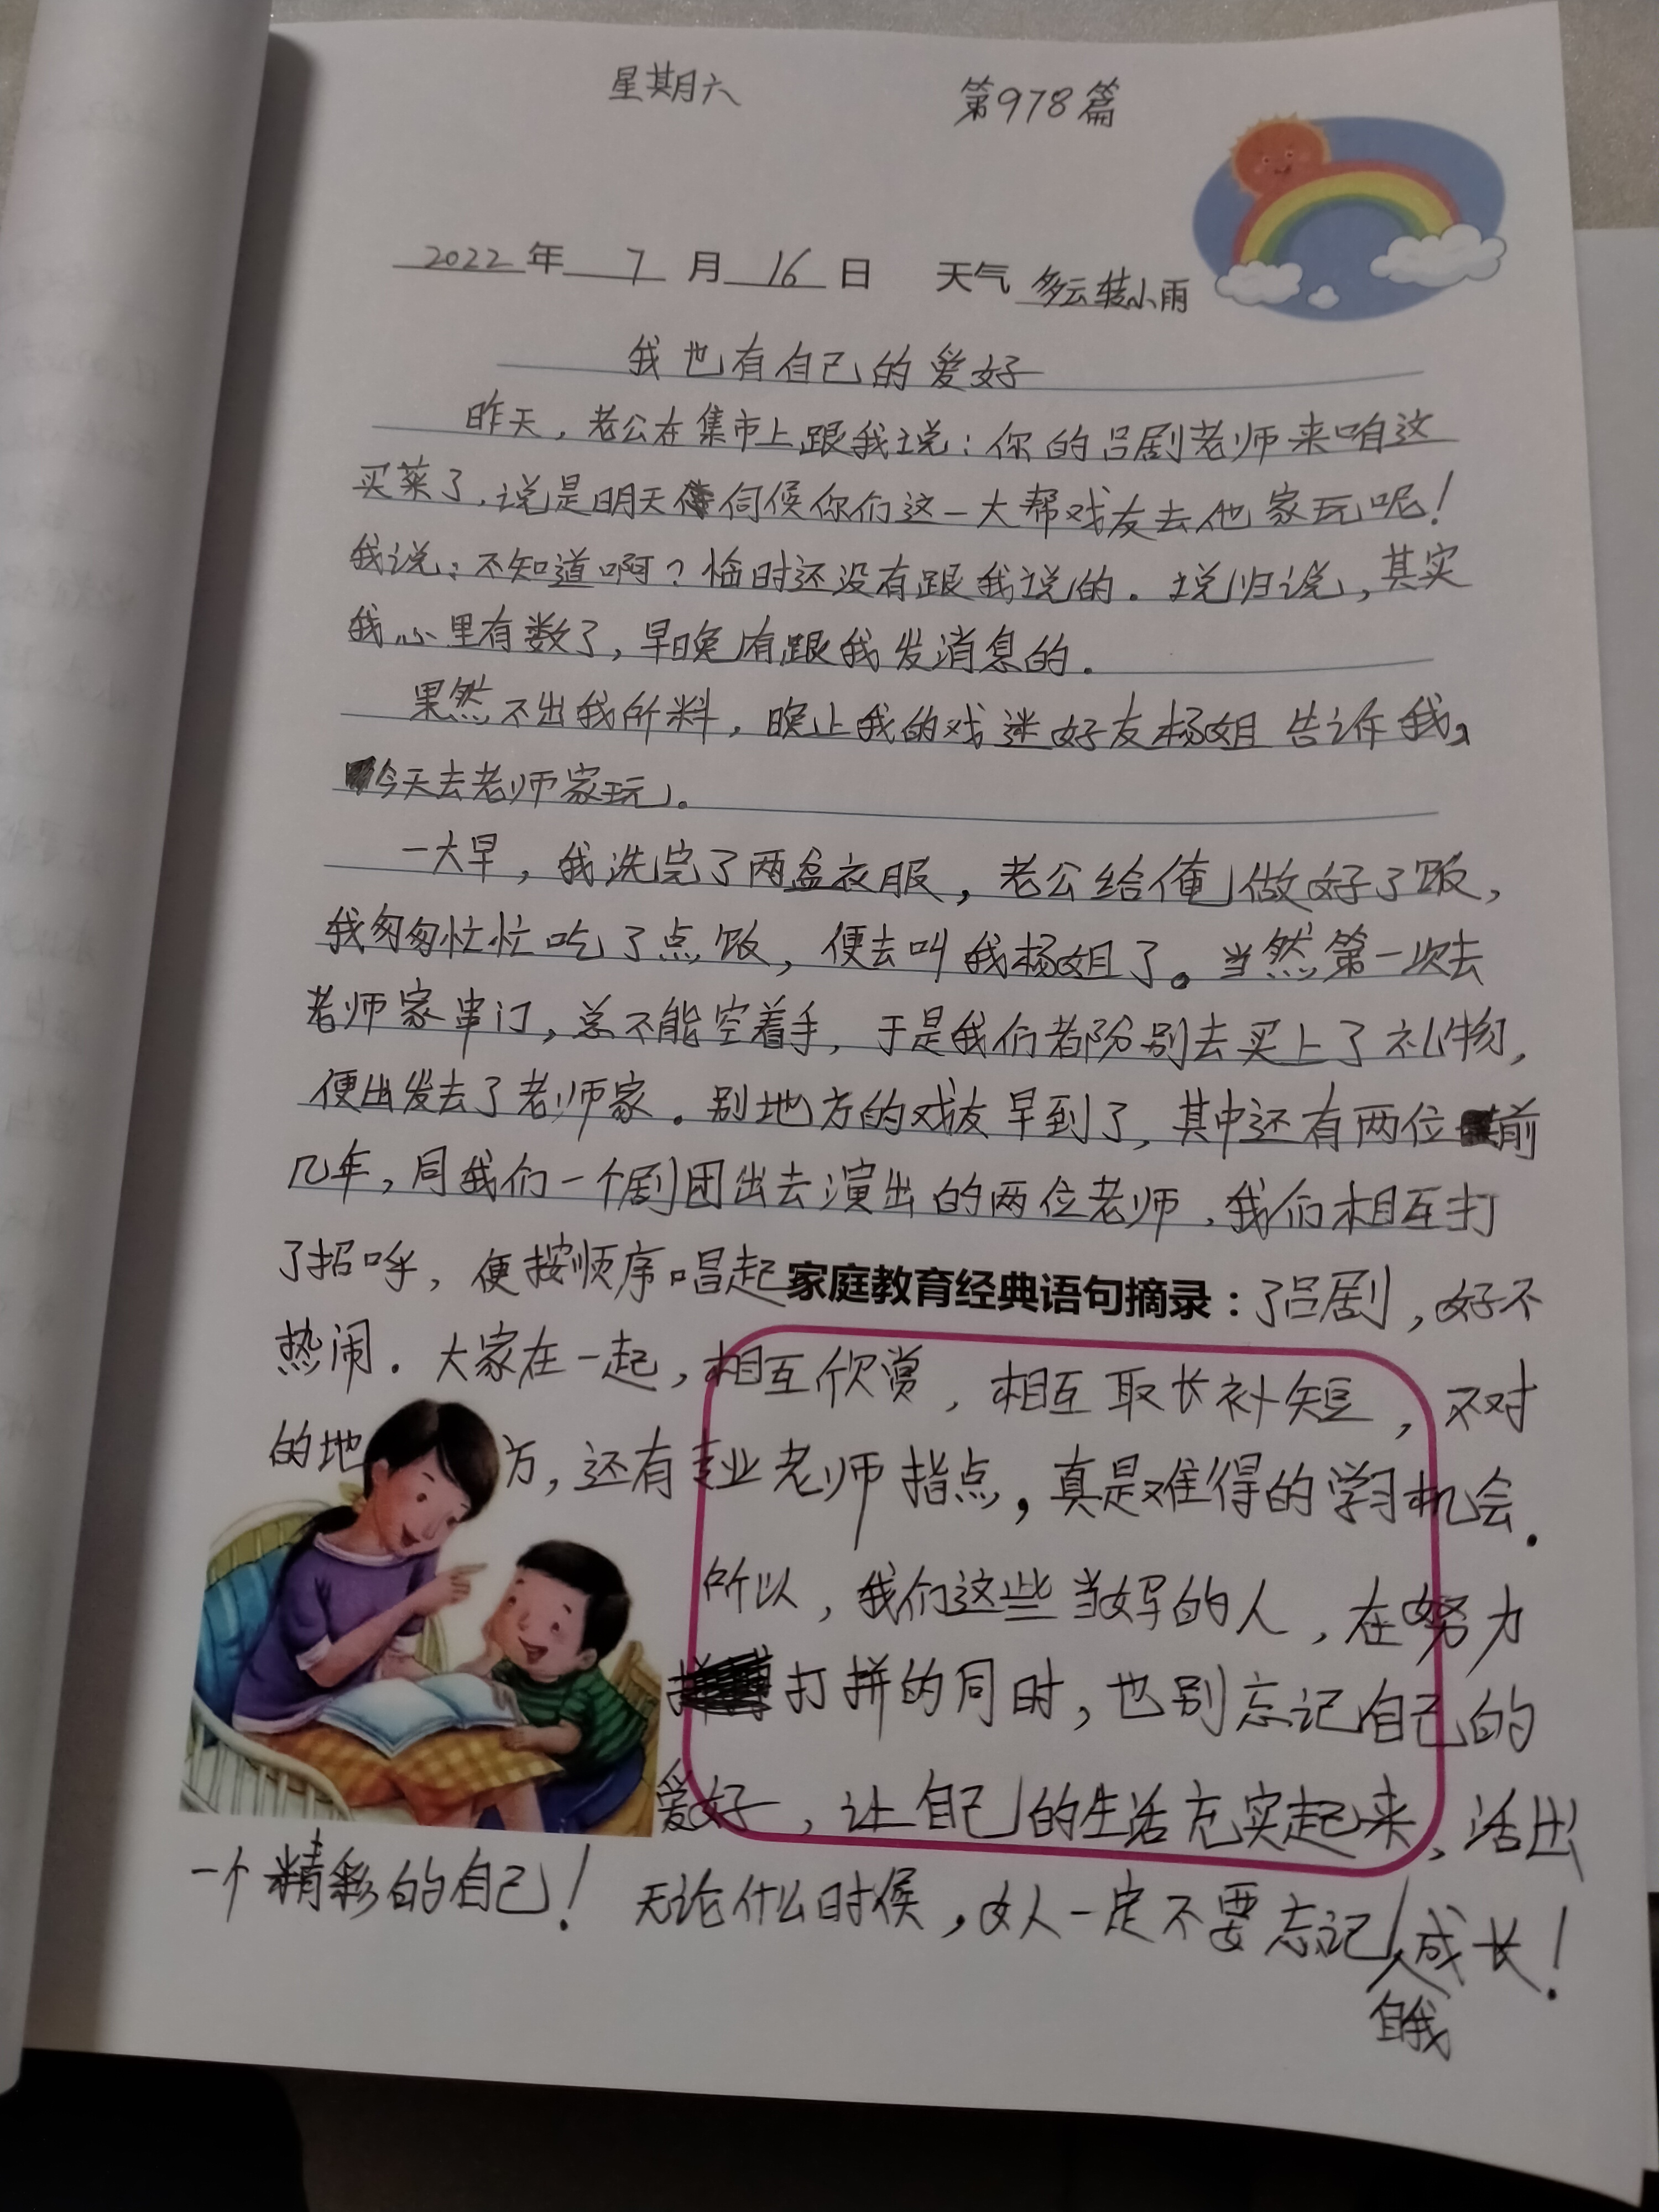 星期六 第978篇
2022年 7月 16日 天气 多云转小雨
我也有自己的爱好
昨天，老公在集市上跟我说：你的吕剧老师来咱这
买菜了，说是明天伺候你们这一大帮戏友去他家玩呢！
我说：不知道啊？临时还没有跟我说的。说归说，其实
我心里有数了，早晚有跟我发消息的。
果然不出我所料，晚上我的戏迷好友杨姐告诉我，
今天去老师家玩。
一大早，我洗完了两盆衣服，老公给俺做好了饭，
我匆匆忙忙吃了点饭，便去叫我杨姐了。当然第一次去
老师家串门，总不能空着手，于是我们都分别去买上了礼物，
便出发去了老师家。别地方的戏友早到了，其中还有两位前
几年，同我们一个剧团出去演出的两位老师，我们相互打
了招呼，便按顺序唱起家庭教育经典语句摘录：了吕剧，好不
热闹。大家在一起，相互欣赏，相互取长补短，不对
的地方，还有专业老师指点，真是难得的学习机会．
所以，我们这些当妈的人，在努力
打拼的同时，也别忘记自己的
爱好，让自己的生活充实起来，活出
一个精彩的自己！无论什么时候，女人一定不要忘记自我成长！